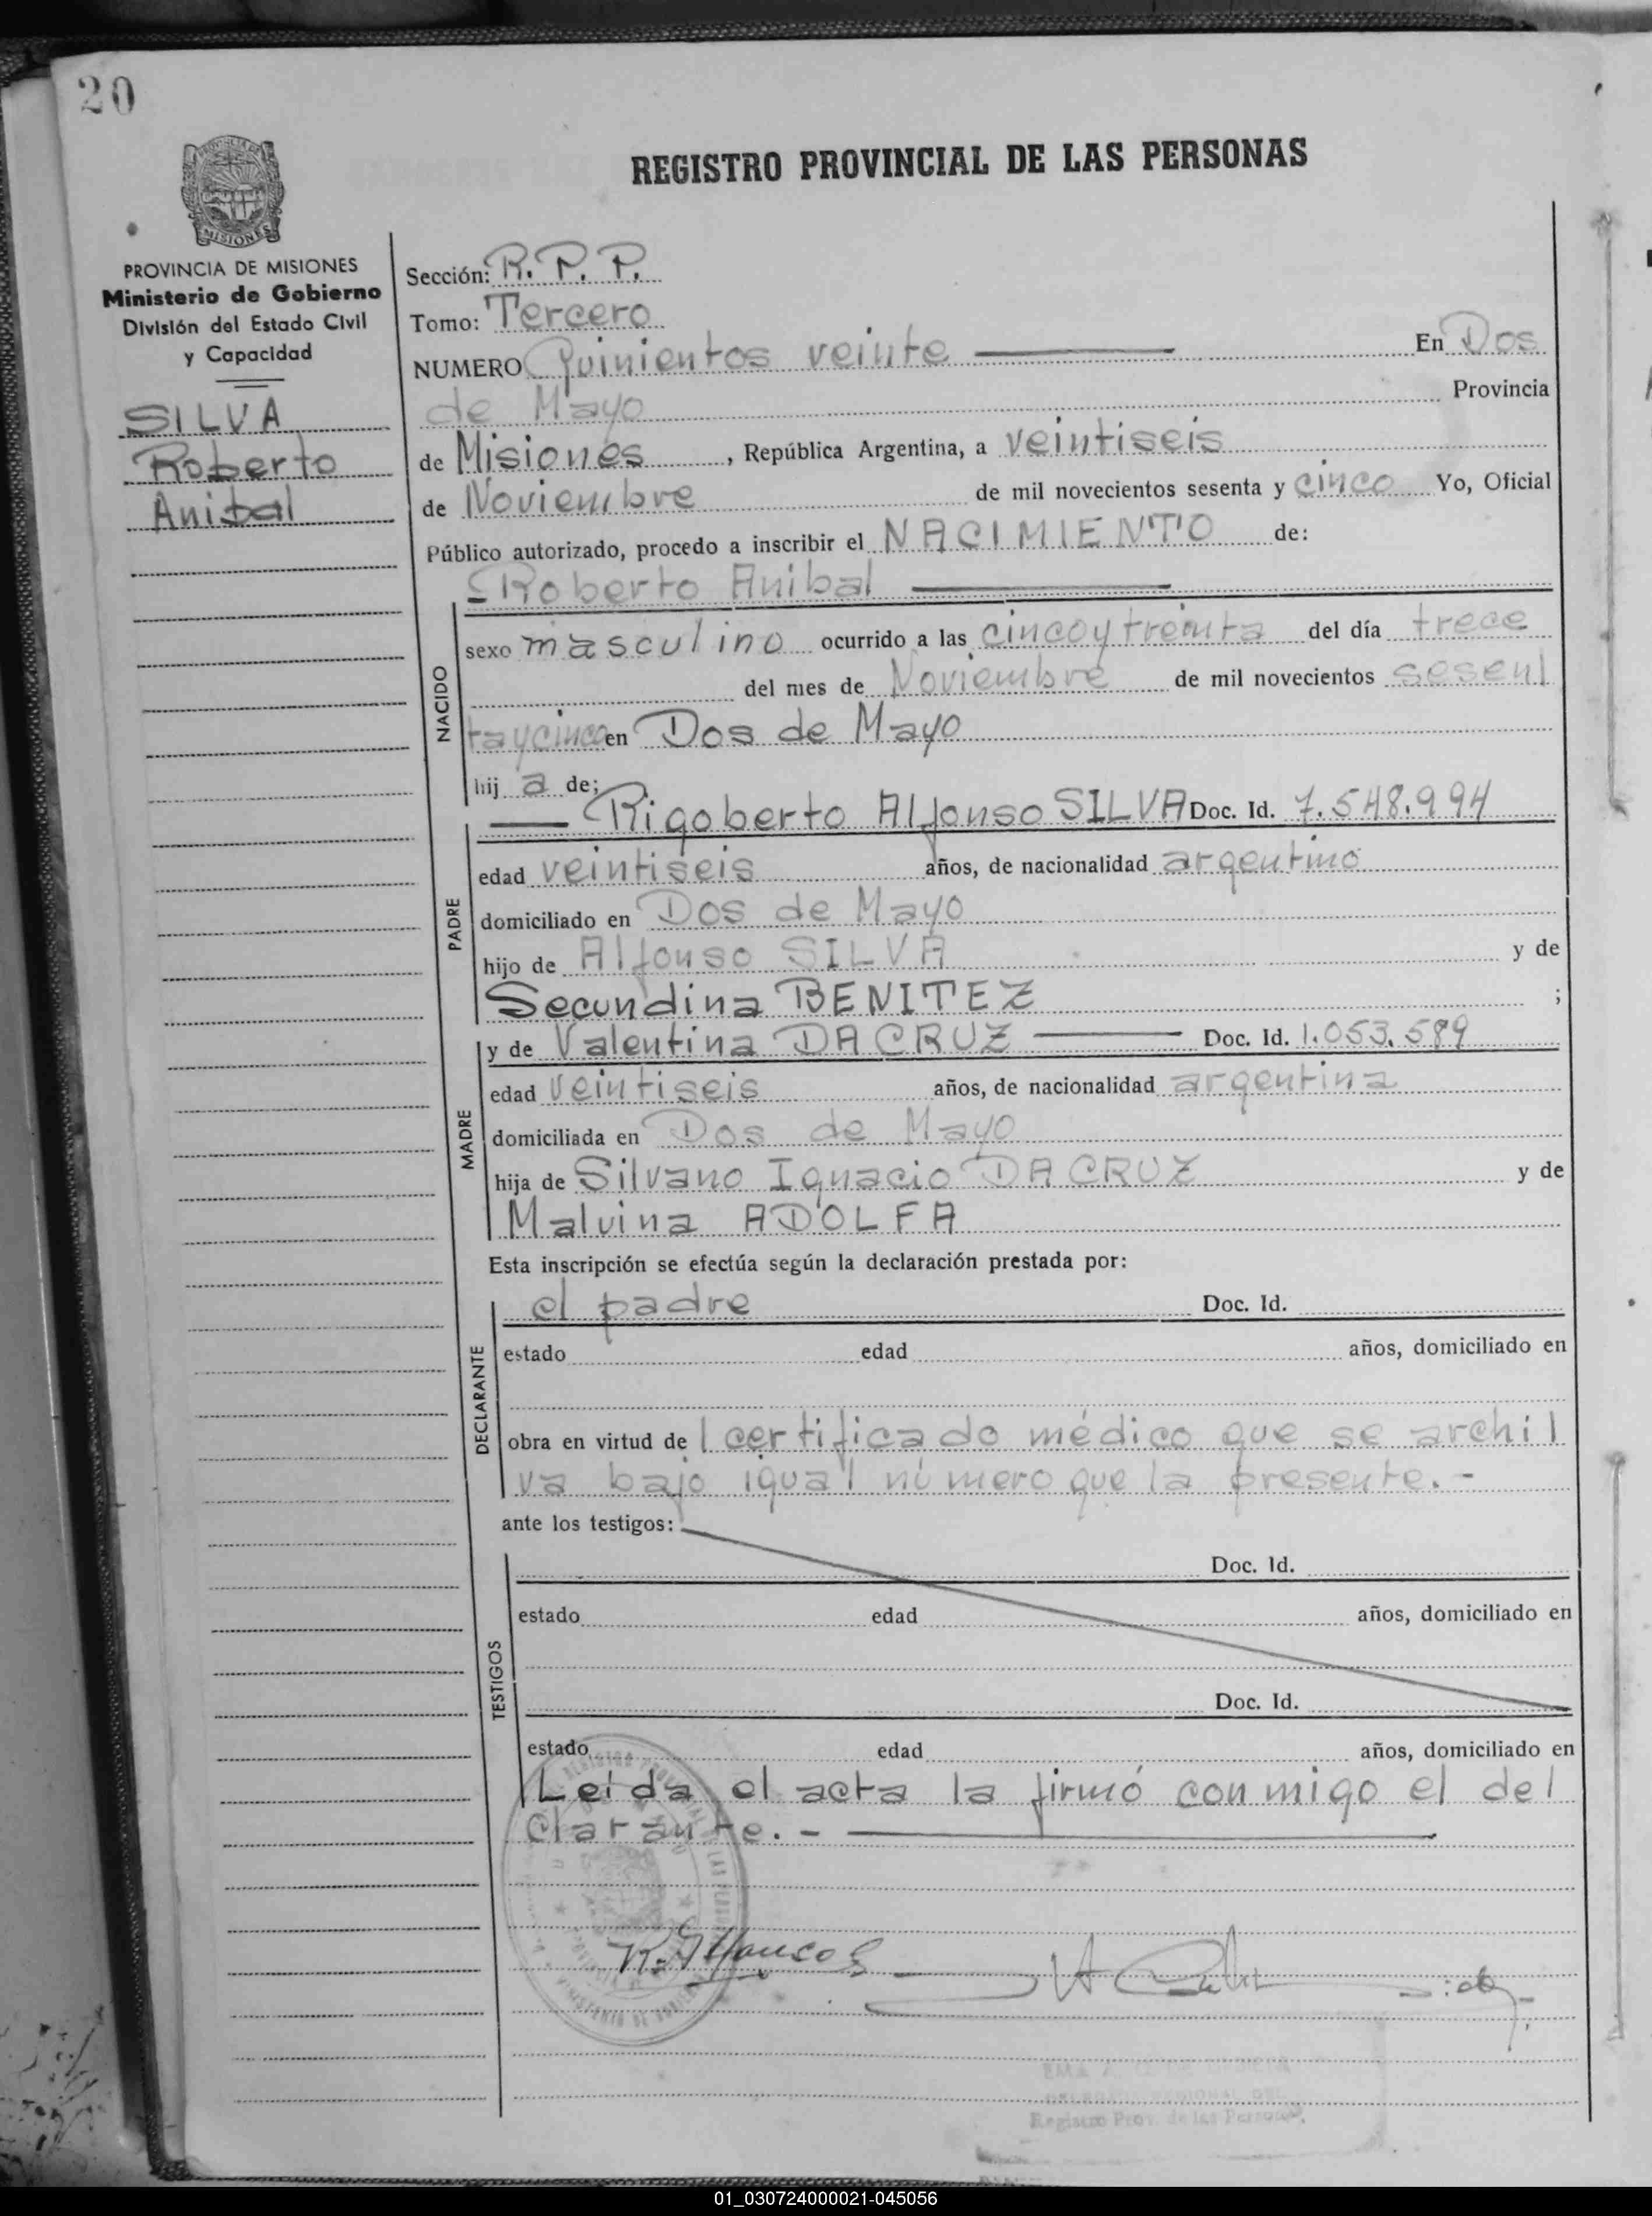 20
REGISTRO PROVINCIAL DE LAS PERSONAS
MISIONES
PROVINCIA DE MISIONES
Ministerio de Gobierno
División del Estado Civil
y Capacidad
SILVA
Roberto
Anibal
Sección: R. P. P.
Tomo: Tercero
NUMERO Quinientos veinte En Dos
de Mayo Provincia
de Misiones, República Argentina, a veintiseis
de Noviembre de mil novecientos sesenta y cinco Yo, Oficial
Público autorizado, procedo a inscribir el NACIMIENTO de:
Roberto Anibal
NACIDO
sexo masculino ocurrido a las cinco y treinta del día trece
del mes de Noviembre de mil novecientos sesen
ta y cinco en Dos de Mayo
hij a de;
Rigoberto Alfonso SILVA Doc. Id. 7.548.994
PADRE
edad veintiseis años, de nacionalidad argentino
domiciliado en Dos de Mayo
hijo de Alfonso SILVA y de
Secundina BENITEZ ;
y de Valentina DA CRUZ Doc. Id. 1.053.589
MADRE
edad veintiseis años, de nacionalidad argentina
domiciliada en Dos de Mayo
hija de Silvano Ignacio DA CRUZ y de
Malvina ADOLFA
Esta inscripción se efectúa según la declaración prestada por:
DECLARANTE
el padre Doc. Id.
estado edad años, domiciliado en
obra en virtud de l certificado médico que se archi
va bajo igual número que la presente.-
ante los testigos:
TESTIGOS
Doc. Id.
estado edad años, domiciliado en
Doc. Id.
estado edad años, domiciliado en
Leida el acta la firmó conmigo el de
clarante.-
Registro Prov. de las Personas
01_030724000021-045056